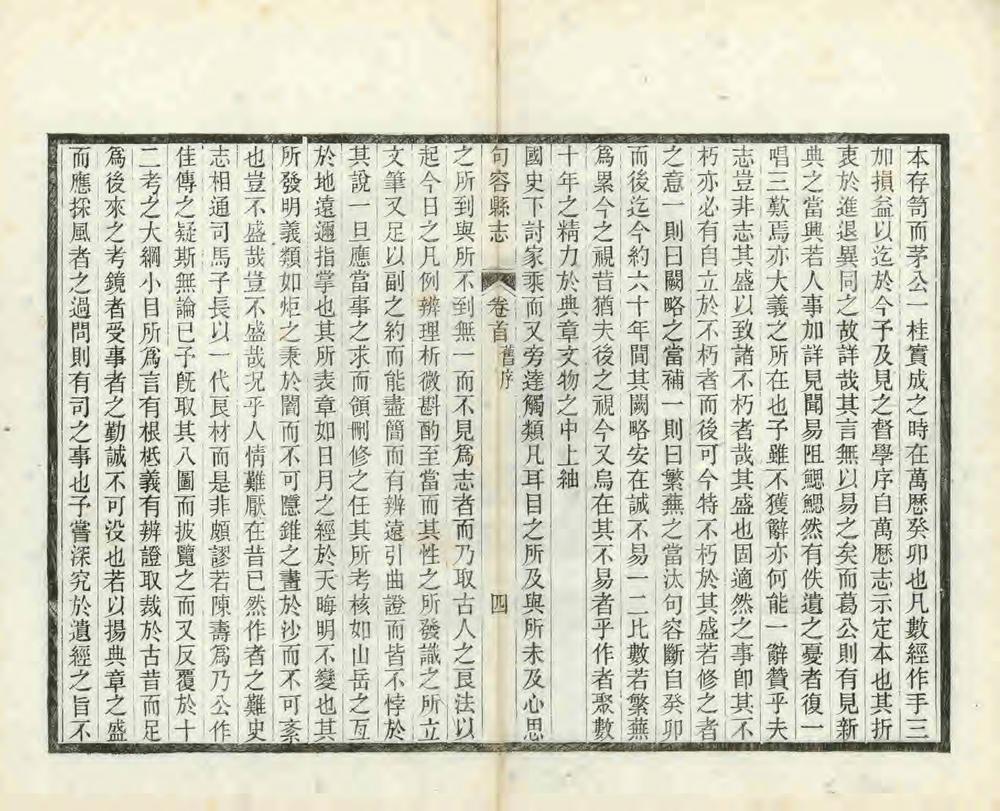 本存笥而茅公一桂實成之時在萬歷癸卯也凡數經作手三
加損益以迄於今予及見之督學序自萬歷志示定本也其折
衷於進退異同之故詳哉其言無以易之矣而葛公則有見新
典之當興若人事加詳見聞易阻鰓鰓然有佚遺之憂者復一
唱三歎焉亦大義之所在也予雖不獲辭亦何能一辭贊乎夫
志豈非志其盛以致諸不朽者哉其盛也固適然之事卽其不
朽亦必有自立於不朽者而後可今特不朽於其盛若修之者
之意一則曰闕略之當補一則曰繁蕪之當汰句容斷自癸卯
而後迄今約六十年間其闕略安在誠不易一二比數若繁蕪
爲累今之視昔猶夫後之視今又烏在其不易者乎作者聚數
十年之精力於典章文物之中上紬
國史下討家乘而又旁達觸類凡耳目之所及與所未及心思
句容縣志 卷首 舊序 四
之所到與所不到無一而不見爲志者而乃取古人之良法以
起今日之凡例辨理析微斟酌至當而其性之所發識之所立
文筆又足以副之約而能盡簡而有辨遠引曲證而皆不悖於
其說一旦應當事之求而領刪修之任其所考核如山岳之亙
於地遠邇指掌也其所表章如日月之經於天晦明不變也其
所發明義類如炬之秉於闇而不可隱錐之畫於沙而不可紊
也豈不盛哉豈不盛哉况乎人情難厭在昔已然作者之難史
志相通司馬子長以一代良材而是非頗謬若陳壽爲乃公作
佳傳之疑斯無論已予旣取其八圖而披覽之而又反覆於十
二考之大綱小目所爲言有根柢義有辨證取裁於古昔而足
爲後來之考鏡者受事者之勤誠不可没也若以揚典章之盛
而應採風者之過問則有司之事也予嘗深究於遺經之旨不